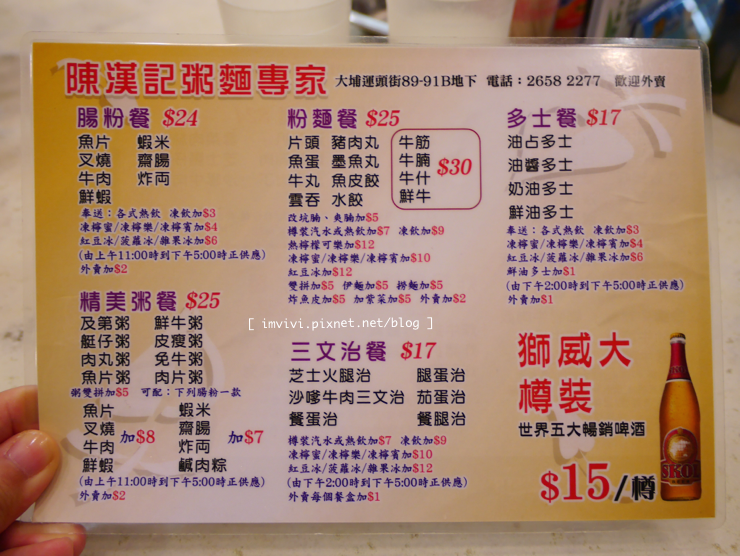 陳漢記粥麵專家 大埔運頭街89-91B地下 電話：2658 2277 歡迎外賣
腸粉餐 $24
魚片 蝦米
叉燒 齋腸
牛肉 炸両
鮮蝦
奉送：各式熱飲 凍飲加$3
凍檸蜜/凍檸樂/凍檸賓加$4
紅豆冰/菠蘿冰/雜果冰加$6
(由上午11:00時到下午5:00時正供應)
外賣加$2
精美粥餐 $25
及第粥 鮮牛粥
艇仔粥 皮瘦粥
肉丸粥 免牛粥
魚片粥 肉片粥
粥雙拼加$5 可配：下列腸粉一款
魚片 蝦米
叉燒 齋腸
加$8 加$7
牛肉 炸両
鮮蝦 鹹肉粽
(由上午11:00時到下午5:00時正供應)
外賣加$2
粉麵餐 $25
片頭 豬肉丸 牛筋
魚蛋 墨魚丸 牛腩
$30
牛丸 魚皮餃 牛什
雲吞 水餃 鮮牛
改坑腩、爽腩加$5
樽裝汽水或熱飲加$7 凍飲加$9
熱檸檬可樂加$12
凍檸蜜/凍檸樂/凍檸賓加$10
紅豆冰加$12
雙拼加$5 伊麵加$5 撈麵加$5
炸魚皮加$5 加紫菜加$5 外賣加$2
[ imvivi.pixnet.net/blog ]
三文治餐 $17
芝士火腿治 腿蛋治
沙嗲牛肉三文治 茄蛋治
餐蛋治 餐腿治
樽裝汽水或熱飲加$7 凍飲加$9
凍檸蜜/凍檸樂/凍檸賓加$10
紅豆冰/菠蘿冰/雜果冰加$12
(由下午2:00時到下午5:00時正供應)
外賣每個餐盒加$1
多士餐 $17
油占多士
油醬多士
奶油多士
鮮油多士
奉送：各式熱飲 凍飲加$3
凍檸蜜/凍檸樂/凍檸賓加$4
紅豆冰/菠蘿冰/雜果冰加$6
鮮油多士加$1
(由下午2:00時到下午5:00時正供應)
外賣加$1
獅威大
樽裝
世界五大暢銷啤酒
$15/樽
SKOL